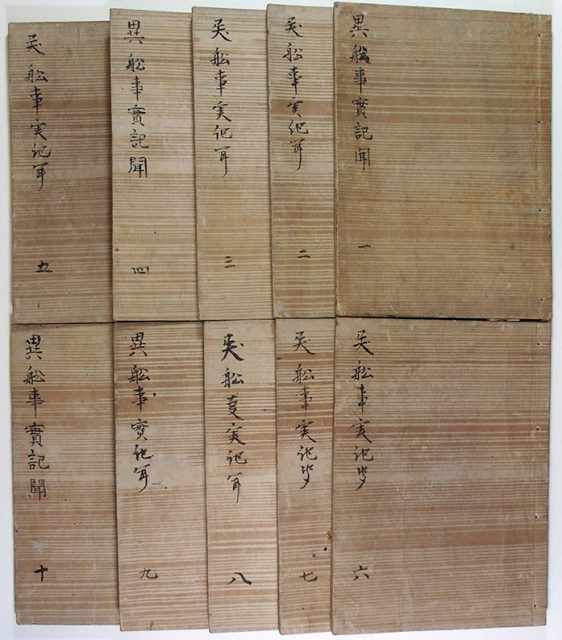 異舩事實記聞 一
異舩事実記聞 二
異舩事実記聞 三
異舩事實記聞 四
異舩事実記聞 五
異舩事実記聞 六
異舩事実記聞 七
異舩事実記聞 八
異舩事實記聞 九
異舩事實記聞 十